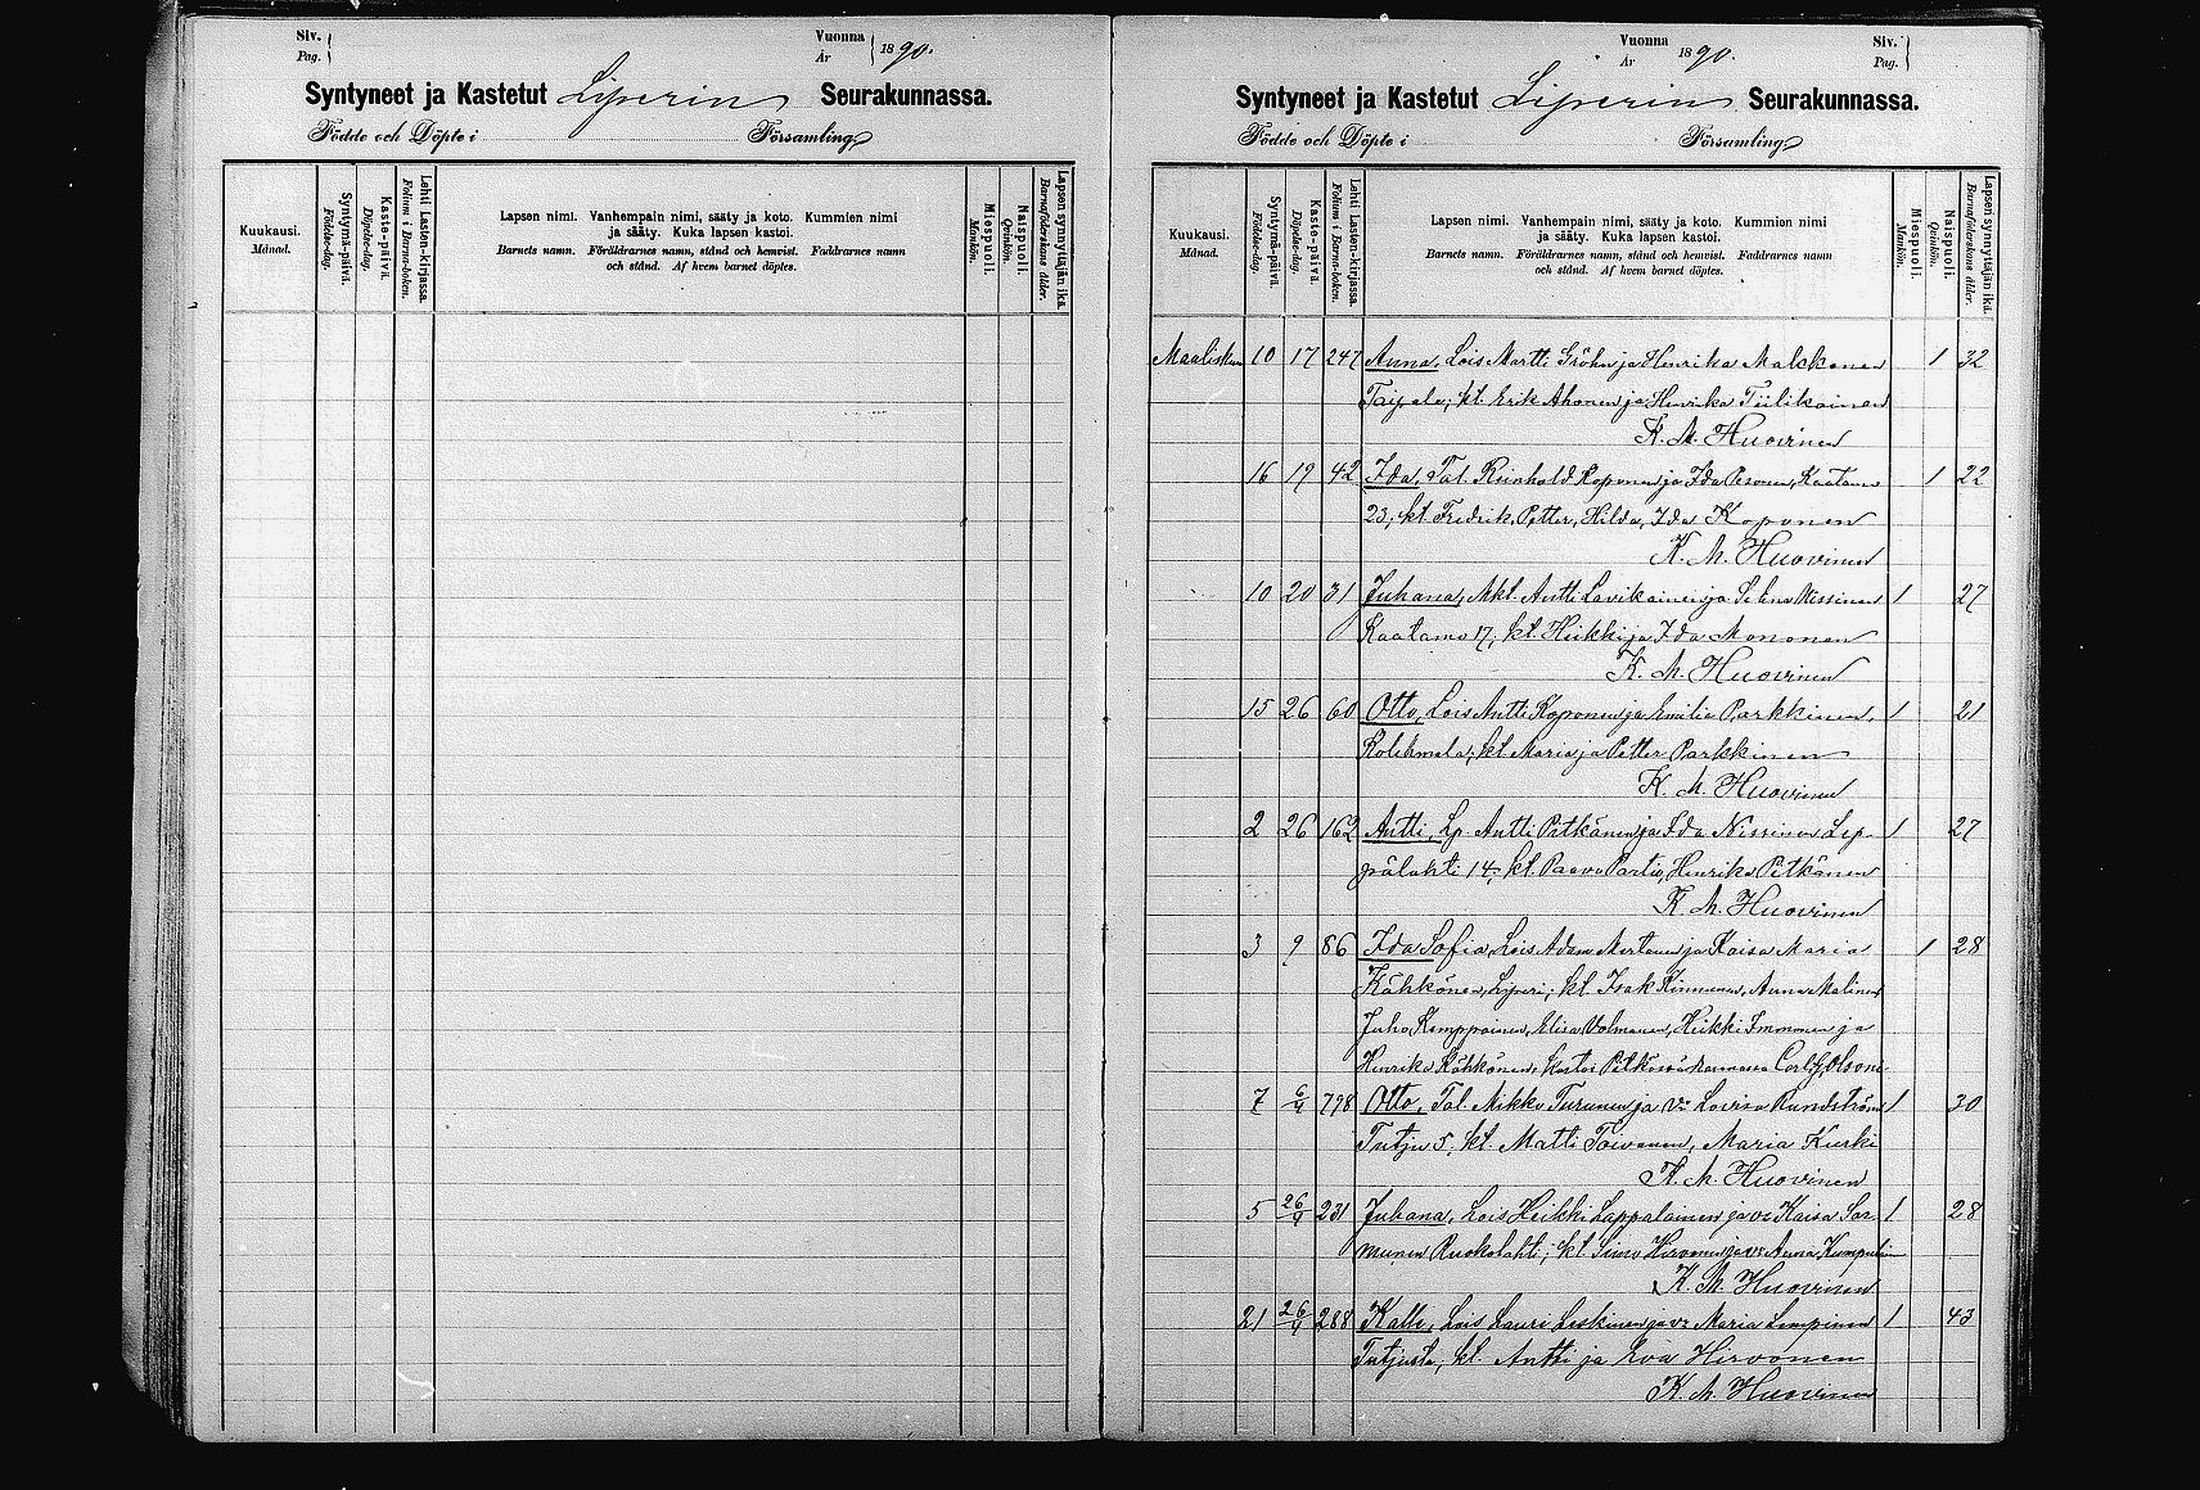 Siv.
Pag.
Vuonna
År
1890.
Syntyneet ja Kastetut Liperin Seurakunnassa.
Födde och Döpte i Församling
Kuukausi.
Månad.
Syntymä-päivä.
Födelse-dag.
Kaste-päivä.
Döpelse-dag.
Lehti Lasten-kirjassa.
Folium i Barna-boken.
Lapsen nimi. Vanhempain nimi, sääty ja koto. Kummien nimi
ja sääty. Kuka lapsen kastoi.
Barnets namn. Föräldrarnes namn, stånd och hemvist. Faddrarnes namn
och stånd. Af hvem barnet döptes.
Miespuoli.
Mankön.
Naispuoli.
Qvinkön.
Lapsen synnyttäjän ikä.
Barnaföderskans ålder.
Vuonna
År
1890.
Siv.
Pag.
Syntyneet ja Kastetut Liperin Seurakunnassa.
Födde och Döpte i Församling
Kuukausi.
Månad.
Syntymä-päivä.
Födelse-dag.
Kaste-päivä.
Döpelse-dag.
Lehti Lasten-kirjassa.
Folium i Barna-boken.
Lapsen nimi. Vanhempain nimi, sääty ja koto. Kummien nimi
ja sääty. Kuka lapsen kastoi.
Barnets namn. Föräldrarnes namn, stånd och hemvist. Faddrarnes namn
och stånd. Af hvem barnet döptes.
Miespuoli.
Mankön.
Naispuoli.
Qvinkön.
Lapsen synnyttäjän ikä.
Barnaföderskans ålder.
Maaliskuu 10 17 247 Anna, Lois Martti Gröhn ja Henrika Malkkonen 1 32
Taipale; kt. Erik Ahonen ja Henrika Tiilikainen
K. M. Huovinen
16 19 42 Ida, Tal. Reinhold Koponen ja Ida Pesonen, Kaatamo 1 22
23; kt. Fredrik, Petter, Hilda, Ida Koponen
K. M. Huovinen
10 20 31 Juhana, Mkl. Antti Lavikainen ja Selma Nissinen 1 27
Kaatamo 17; kt. Heikki ja Ida Mononen
K. M. Huovinen
15 26 60 Otto, Lois Antti Koponen ja Emilia Parkkinen, 1 21
Kolehmala; kt. Maria ja Petter Parkkinen
K. M. Huovinen
2 26 162 Antti, Lp. Antti Pitkänen ja Ida Nissinen Lep- 1 27
pälahti 14; kt. Paavo Partio, Henrika Pitkänen
K. M. Huovinen
3 9 86 Ida Sofia, Lois Adam Mertanen ja Kaisa Maria 1 28
Kähkönen, Liperi; kt. Isak Kinnunen, Anna Malinen
Juho Kemppainen, Elisa Volmanen, Heikki Immonen ja
Henrika Kähkönen, kastoi Carl G. Olsoni
7 6/4 798 Otto, Tal. Mikko Turunen ja vo Lovisa Rundström 1 30
Tutju 5; kt. Matti Toivanen, Maria Kurki
K. M. Huovinen
5 26/4 231 Juhana, Lois Heikki Lappalainen ja vo Kaisa Sor- 1 28
munen Ruokolahti; kt. Simo Hirvonen ja vo Anna Kumpulainen
K. M. Huovinen
21 26/4 288 Kalle, Lois Lauri Leskinen ja vo Maria Lempinen 1 43
Tutjusta; kt. Antti ja Eva Hirvonen
K. M. Huovinen